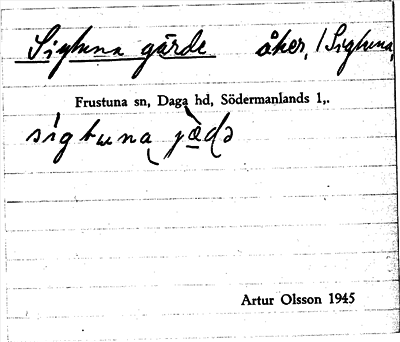 Sigtuna gärde åker, /Sigtuna,
Frustuna sn, Daga hd, Södermanlands l,.
Artur Olsson 1945